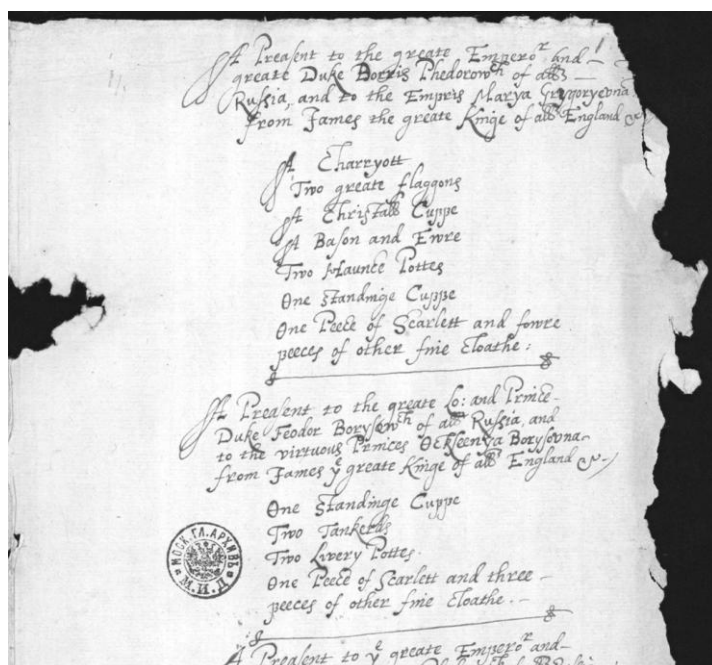 A Preasent to the greate Emperor and
greate Duke Borris Phedorowch of all
Russia, and to the Empris Marya Grygoryevna
from James the greate Kinge of all England
A Charryott
Two greate flaggons
A Christall Cuppe
A Bason and Ewre
Two Haunce Pottes
One standinge Cuppe
One Peece of Scarlett and fowre
peeces of other fine Cloathe :
A Preasent to the greate Lo: and Prince
Duke Feodor Borysowch of all Russia, and
to the virtuous Princes Oekseenya Borysovna
from James ye greate Kinge of all England
One standinge Cuppe
Two Tankerds
Two Livery Pottes.
One Peece of Scarlett and three
peeces of other fine Cloathe.
МОСК. ГЛ. АРХИВЪ
М.И.Д.
A Preasent to ye greate Emperor and